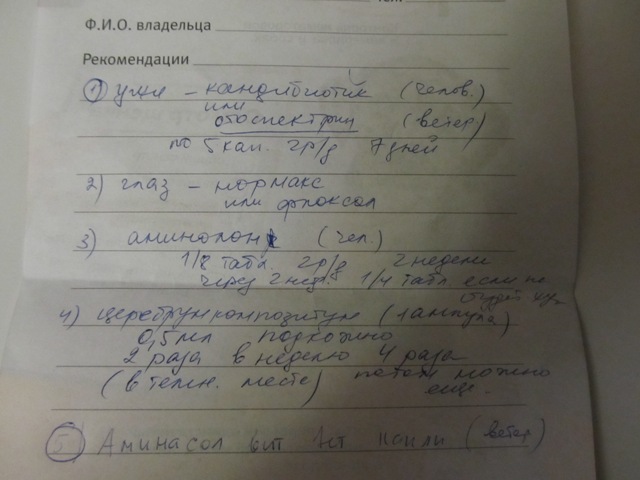 Ф.И.О. владельца
Рекомендации
1) уши – кандибиотик (челов.)
или
отоспектрин (ветер)
по 5 кап. 2р/д 7 дней
2) глаз – нормакс
или флоксал
3) аминолон (чел.)
1/8 табл. 2р/д 2 недели
через 2 нед. 1/4 табл если не
будет
4) церебрумкомпозитум (1 ампула)
0,5 мл подкожно
2 раза в неделю 4 раза
(в темн. месте) потом можно
еще.
5) Аминасол вит капли (ветер)